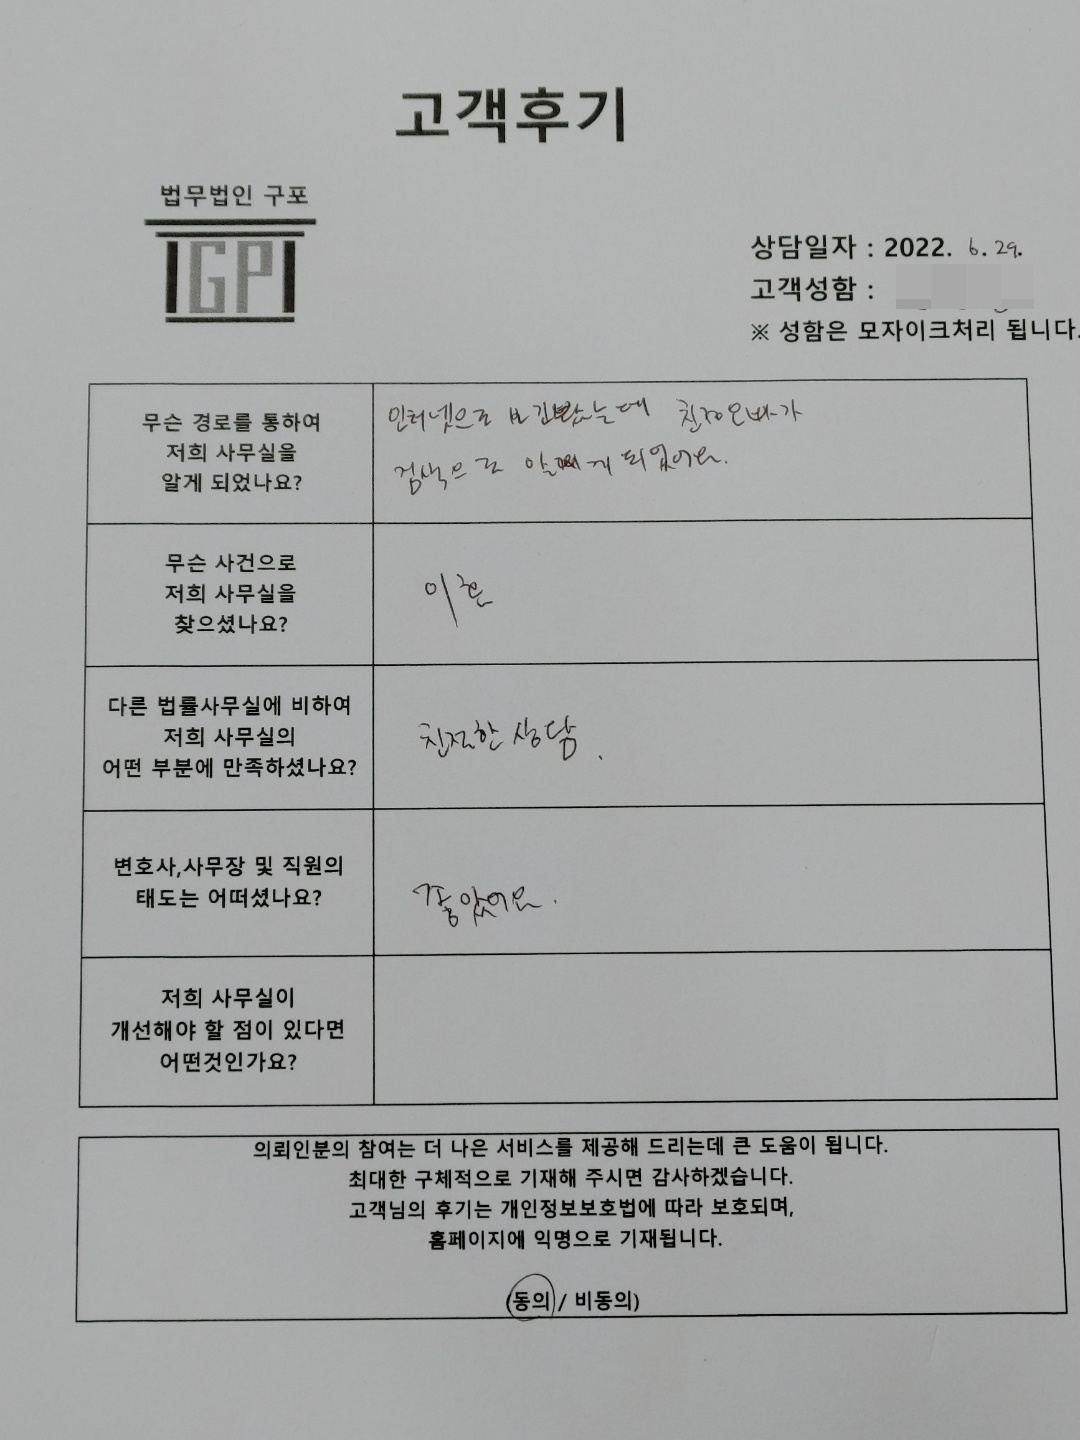 고객후기
법무법인 구포
GP
상담일자 : 2022. 6. 29.
고객성함 :
※ 성함은 모자이크처리 됩니다.
무슨 경로를 통하여
저희 사무실을
알게 되었나요?
인터넷으로 보긴 봤는데 친정오빠가
검색으로 알게 되었어요.
무슨 사건으로
저희 사무실을
찾으셨나요?
이혼
다른 법률사무실에 비하여
저희 사무실의
어떤 부분에 만족하셨나요?
친절한 상담.
변호사,사무장 및 직원의
태도는 어떠셨나요?
좋았어요.
저희 사무실이
개선해야 할 점이 있다면
어떤것인가요?
의뢰인분의 참여는 더 나은 서비스를 제공해 드리는데 큰 도움이 됩니다.
최대한 구체적으로 기재해 주시면 감사하겠습니다.
고객님의 후기는 개인정보보호법에 따라 보호되며,
홈페이지에 익명으로 기재됩니다.
(동의 / 비동의)